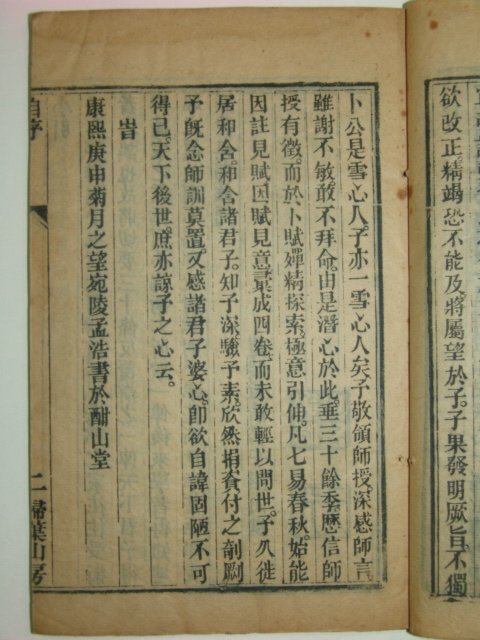 欲改正精竭恐不能及將屬望於子子果發明厥旨不獨
卜公是雪心人子亦一雪心人矣予敬領師授深感師言
雖謝不敏敢不拜命由是潛心於此垂三十餘季歷信師
授有徵而於卜賦殫精探索極意引伸凡七易春秋始能
因註見賦因賦見意彙成四卷而未敢輕以問世予久徙
居和舍和舍諸君子知予深驗予素欣然捐貲付之剞劂
予旣念師訓莫置又感諸君子婆心卽欲自諱固陋不可
得已天下後世庶亦諒予之心云
旹
康熙庚申菊月之望宛陵孟浩書於酣山堂
自序
二
掃葉山房